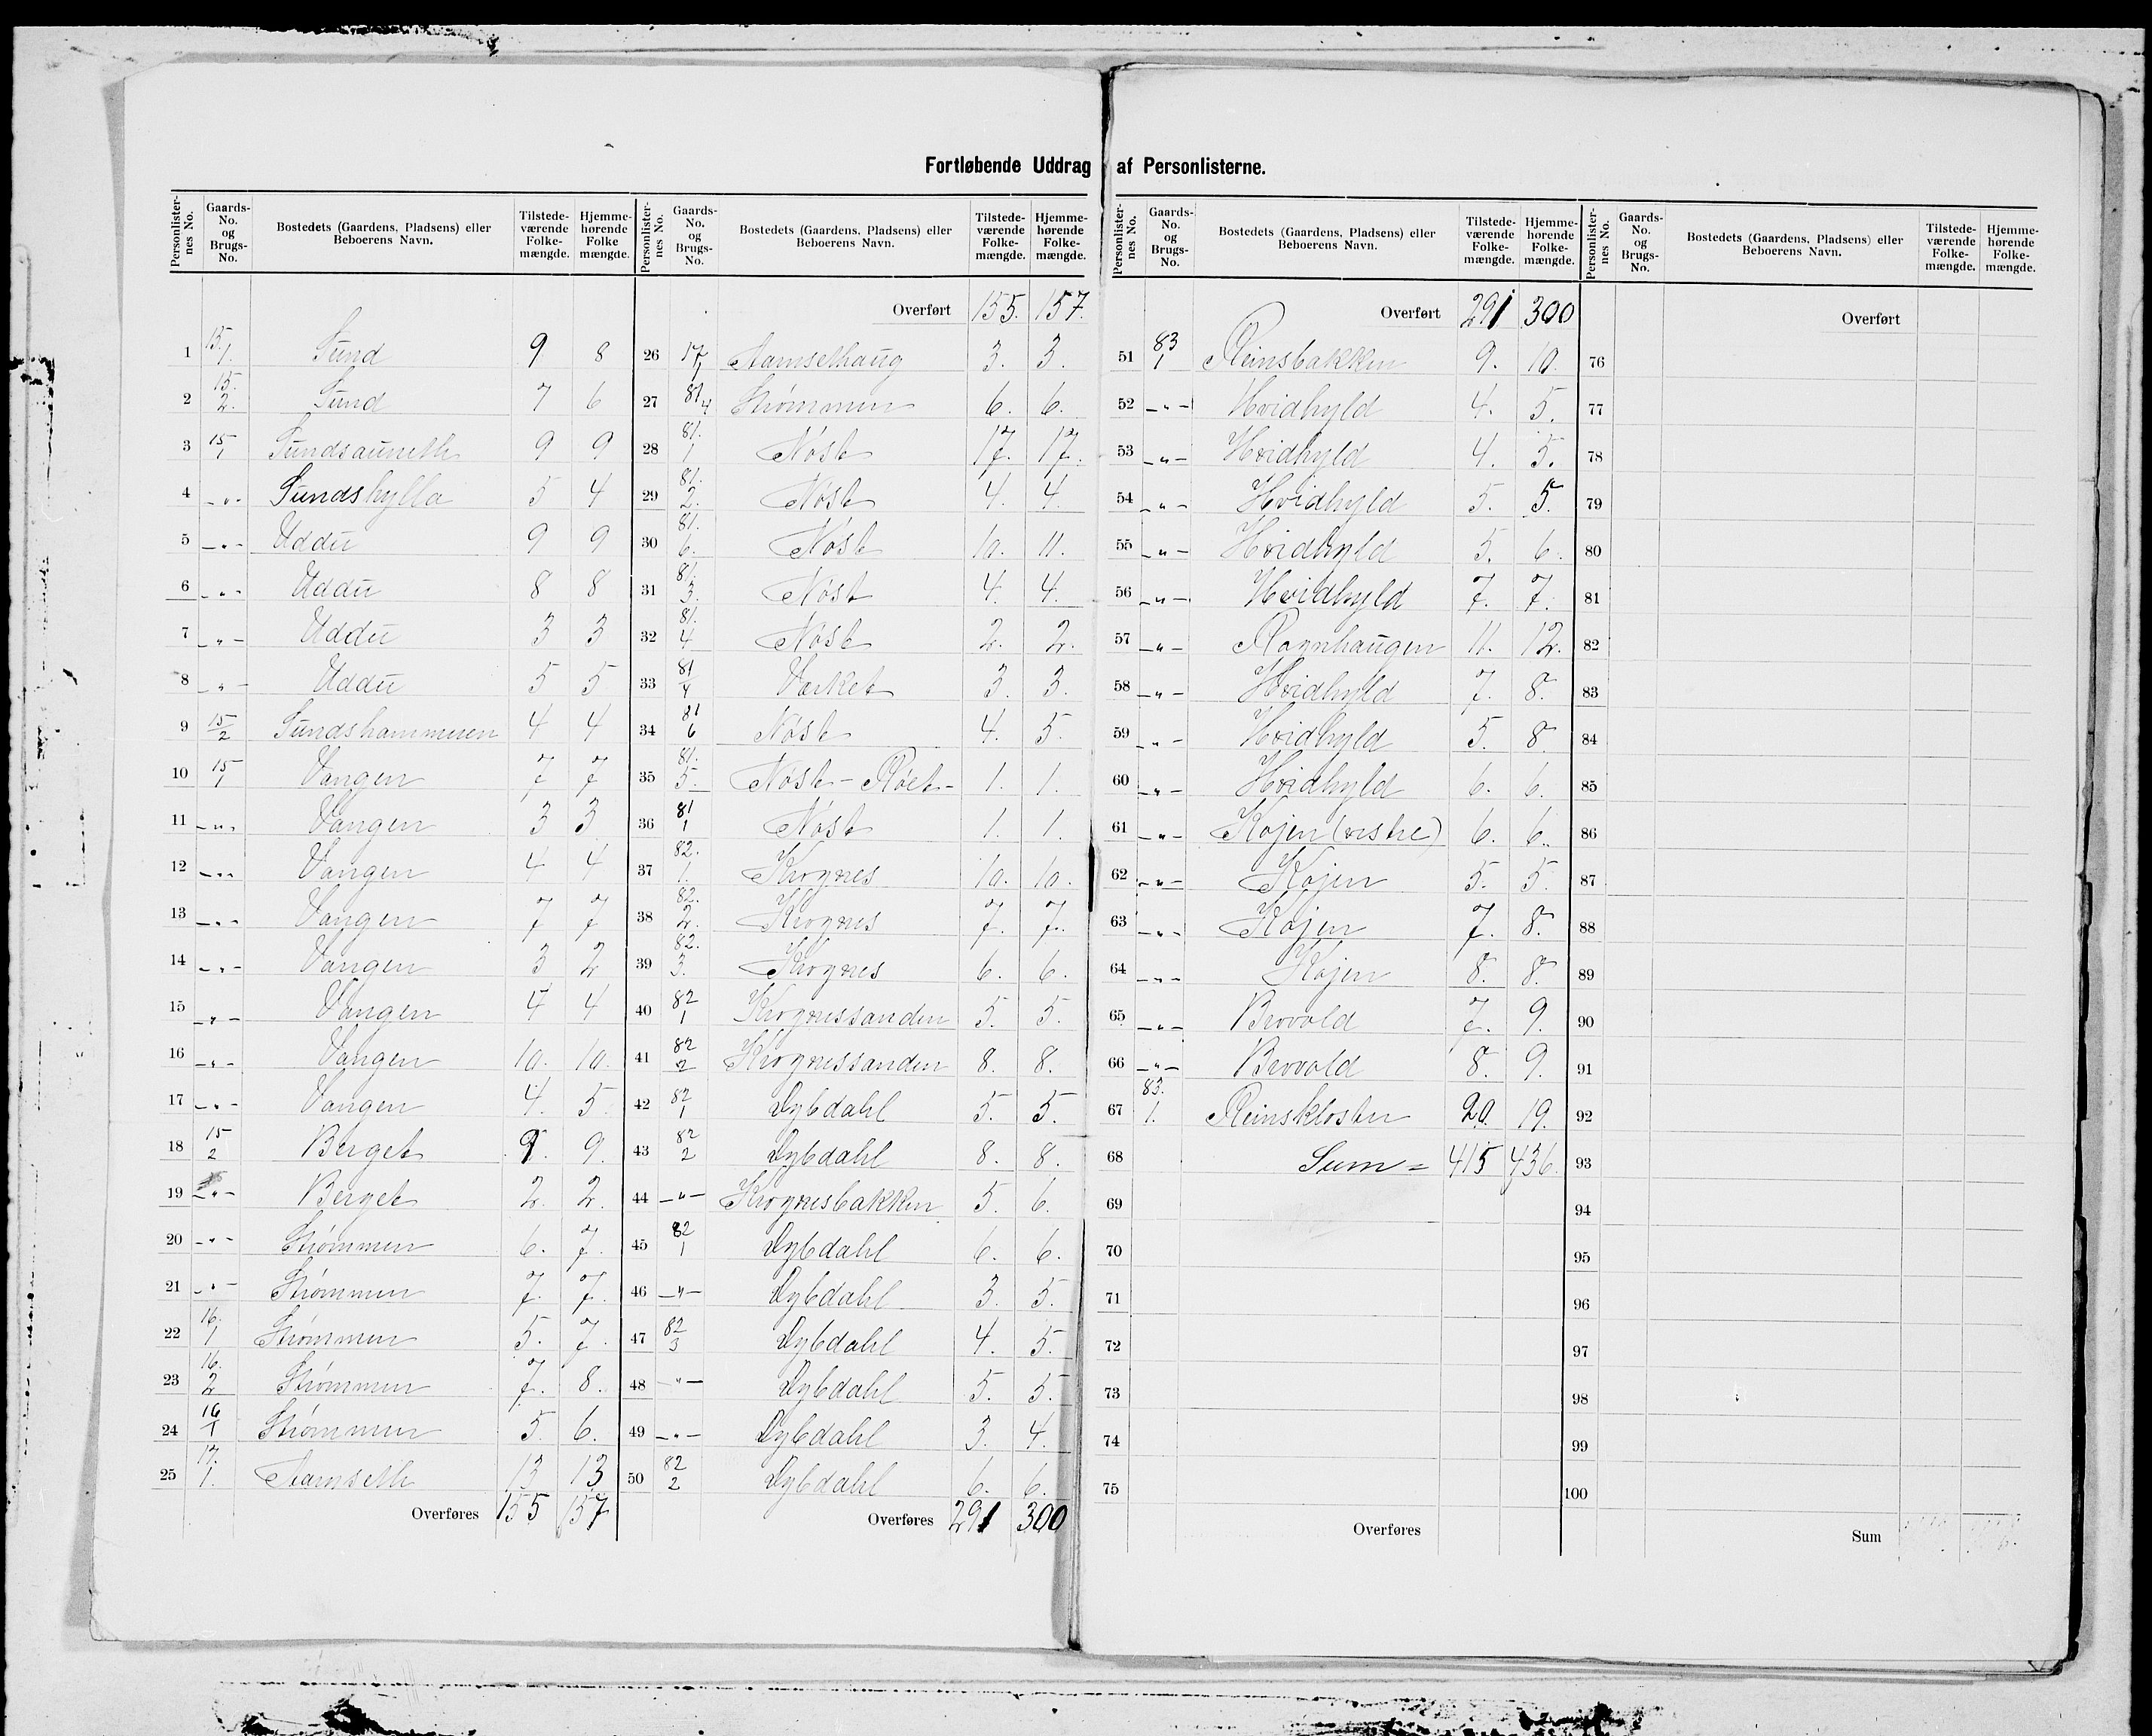 Fortløbende Uddrag af Personlisterne.
Personlisternes No. Gaards-No. og Brugs-No. Bostedets (Gaardens, Pladsens) eller Beboerens Navn. Tilstedeværende Folkemængde. Hjemmehørende Folkemængde.
1 15. 1. Sund 9 8
2 15. 2. Sund 7 6
3 15 1 Sundsauneth 9 9
4 -"- Sundshylla 5 4
5 -"- Uddu 9 9
6 -"- Uddu 8 8
7 -"- Uddu 3 3
8 -"- Uddu 5 5
9 15/2 Sundshammeren 4 4
10 15 1 Vangen 7 7
11 -"- Vangen 3 3
12 -"- Vangen 4 4
13 -"- Vangen 7 7
14 -"- Vangen 3 2
15 -"- Vangen 4 4
16 -"- Vangen 10. 10.
17 -"- Vangen 4. 5
18 15 2 Berget 9. 9.
19 -"- Berget 2. 2.
20 -"- Strømmen 6. 7.
21 -"- Strømmen 7. 7.
22 16. 1 Strømmen 5. 7.
23 16. 2 Strømmen 7. 8.
24 16 1 Strømmen 5. 6.
25 17. 1. Aamseth 13 13
Overføres 155 157
Overført 155. 157.
26 17/1 Aamsethaug 3. 3.
27 81/4 Strømmen 6. 6.
28 81. 1 Nøst 17. 17.
29 81. 2. Nøst 4. 4.
30 81. 6. Nøst 10. 11.
31 81. 3. Nøst 4. 4.
32 81. 4 Nøst 2. 2.
33 81 4 Værket 3. 3.
34 81 6 Nøst 4. 5.
35 81. 5. Nøst-Røet- 1. 1.
36 81 1 Nøst 1. 1.
37 82. 1. Krognes 10. 10.
38 82. 2. Krognes 7. 7.
39 82. 3. Krognes 6. 6.
40 82 1 Krognessanden 5. 5.
41 82 2 Krognessanden 8. 8.
42 82 1 Dybdahl 5. 5.
43 82 2 Dybdahl 8. 8.
44 -"- Krognesbakken 5. 6.
45 82 1 Dybdahl 6. 6.
46 -"- Dybdahl 3. 5.
47 82 3 Dybdahl 4. 5.
48 -"- Dybdahl 5. 5.
49 -"- Dybdahl 3. 4.
50 82 2 Dybdahl 6. 6.
Overføres 291 300
Overført 291 300
51 83 1 Reinsbakken 9. 10.
52 -"- Hvidhyld 4. 5.
53 -"- Hvidhyld 4. 5.
54 -"- Hvidhyld 5. 5.
55 -"- Hvidhyld 5. 6.
56 -"- Hvidhyld 7. 7.
57 -"- Ragnhaugen 11. 12.
58 -"- Hvidhyld 7. 8.
59 -"- Hvidhyld 5. 8.
60 -"- Hvidhyld 6. 6.
61 -"- Køjen (østre) 6. 6.
62 -"- Køjen 5. 5.
63 -"- Køjen 7. 8.
64 -"- Køjen 8. 8.
65 -"- Brovold 7. 9.
66 -"- Brovold 8. 9.
67 83. 1. Reinskloster 20. 19.
68 Sum = 415 436.
69
70
71
72
73
74
75
Overføres
Overført
76
77
78
79
80
81
82
83
84
85
86
87
88
89
90
91
92
93
94
95
96
97
98
99
100
Sum